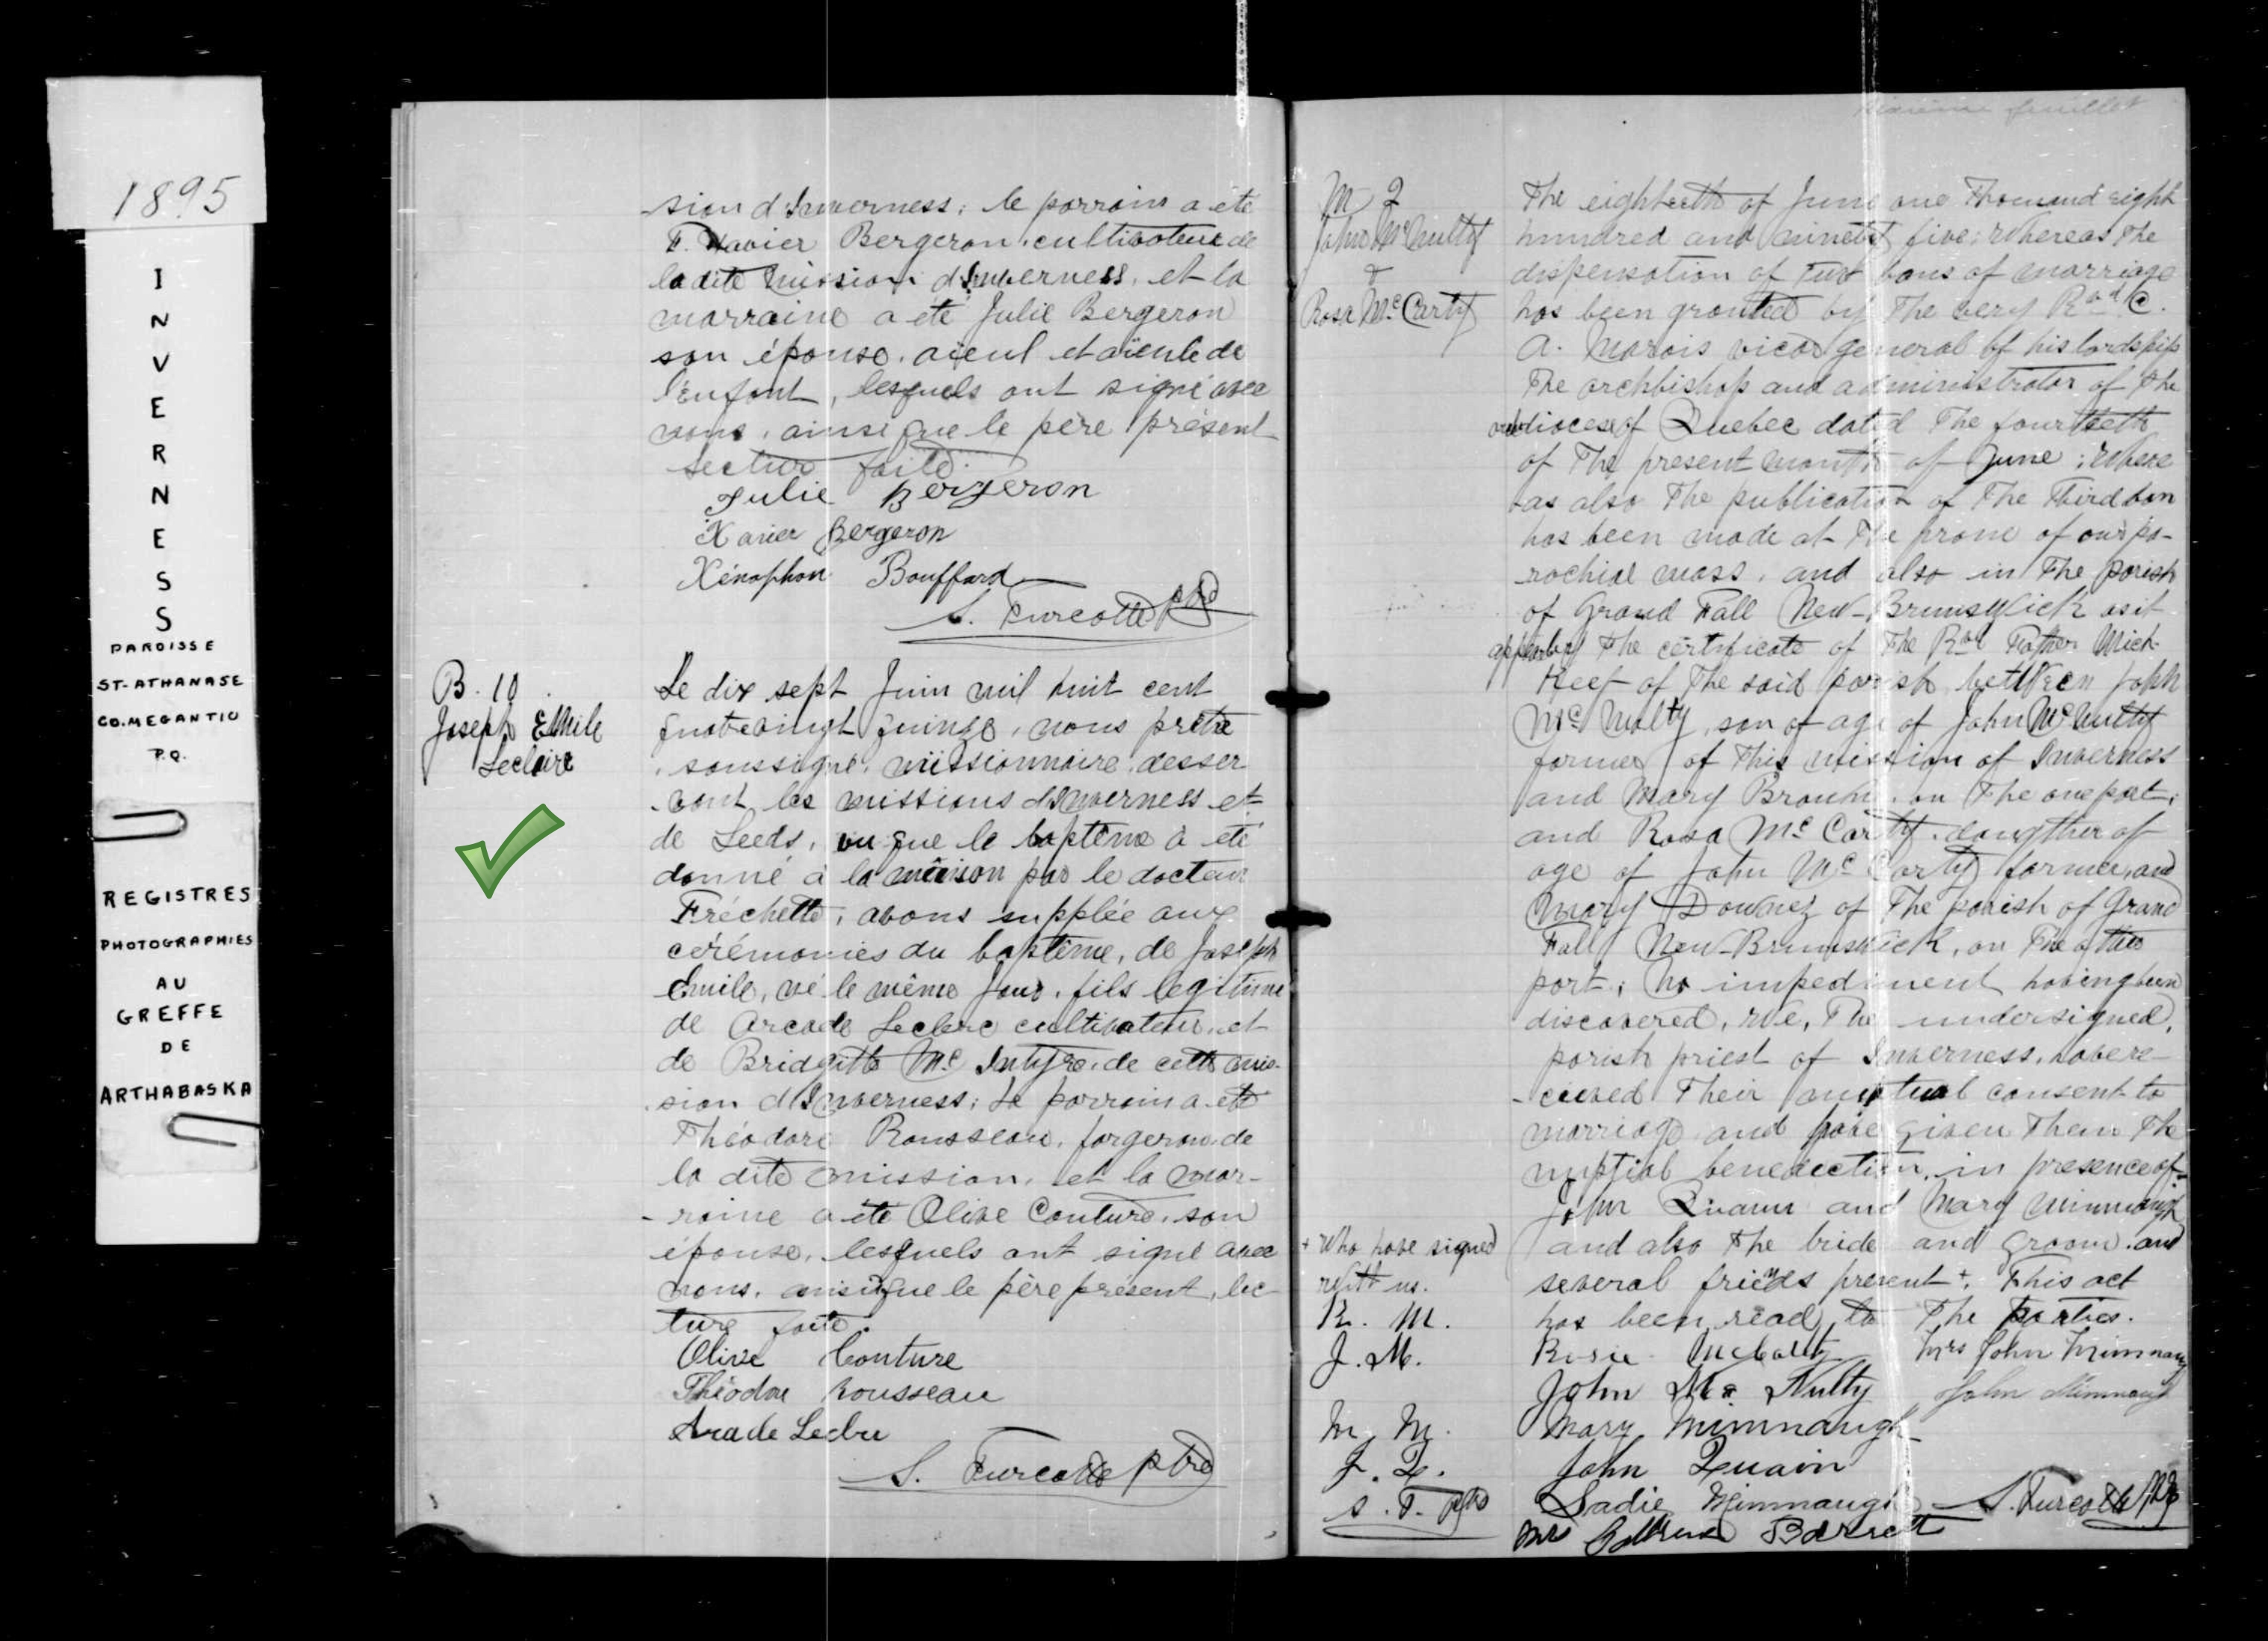 1895
I
N
V
E
R
N
E
S
S
PAROISSE
ST-ATHANASE
CO. MEGANTIC
P.Q.
REGISTRES
PHOTOGRAPHIES
AU
GREFFE
DE
ARTHABASKA
-sion d'Inverness; le parrain a été
F. Xavier Bergeron, cultivateur de
la dite mission d'Inverness, et la
marraine a été Julie Bergeron
son épouse, aïeul et aïeule de
l'enfant, lesquels ont signé avec
nous, ainsi que le père présent
lecture faite.
Julie Bergeron
Xavier Bergeron
Xénophon Bouffard
S. Turcotte Ptre
B. 10
Joseph Emile
Leclaire
Le dix sept Juin mil huit cent
quatrevingt quinze, nous prêtre
soussigné, missionnaire desser
-vant les missions d'Inverness et
de Leeds, vu que le baptême a été
donné à la maison par le docteur
Fréchette, avons supplée aux
cérémonies du baptême, de Joseph
Emile, né le même jour, fils légitime
de Arcade Leclerc cultivateur, et
de Bridgitte Mc Intyre, de cette mis-
-sion d'Inverness; Le parrain a été
Théodore Rousseau, forgeron de
la dite mission, et la mar-
-raine a été Olive Couture, son
épouse, lesquels ont signé avec
nous, ainsi que le père présent, lec
ture faite.
Olive Couture
Théodore Rousseau
S. Turcotte ptre
feuillet
M 2
John McNulty
&
Rosa Mc Carty
The eighteeth of June one Thousand eight
hundred and ninety five; Whereas The
dispensation of two bans of marriage
has been granted by The very Rvd C.
A. Marois vicar general of his lordship
The archbishop and administrator of The
archdiocese of Quebec dated The fourteeth
of The present month of June; Where
-as also The publication of The Third ban
has been made at The prone of our pa-
-rochial mass, and also in The parish
of Grand Fall New-Brunswick as it
appears by The certificate of The Rvd Father
of The said parish, between John
Mc Nulty, son of age of John McNulty
farmer of This mission of Inverness
and Mary Brown, on The one part;
and Rosa Mc Carty, daugther of
age of John Mc Carty farmer, and
Mary of The parish of Grand
Fall New-Brunswick, on The other
part; No impediment having been
discovered, We, The undersigned,
parish priest of Inverness, have re-
-ceived Their mutual consent to
marriage and have given Them The
nuptial benediction, in presence of
John Quann and Mary Minmaugh
and also the bride and groom and
several friends present +. This act
has been read to The parties.
+ Who have signed
with us.
R. M.
J. M.
M. M.
J. Q.
S. T. Ptre
Rosie McCarty Mrs John Mimnaugh
John Mc Nulty John Mimnaugh
Mary Mimnaugh
John Quain
Sadie Mimnaugh S. Turcotte Ptre
Mrs Barrett